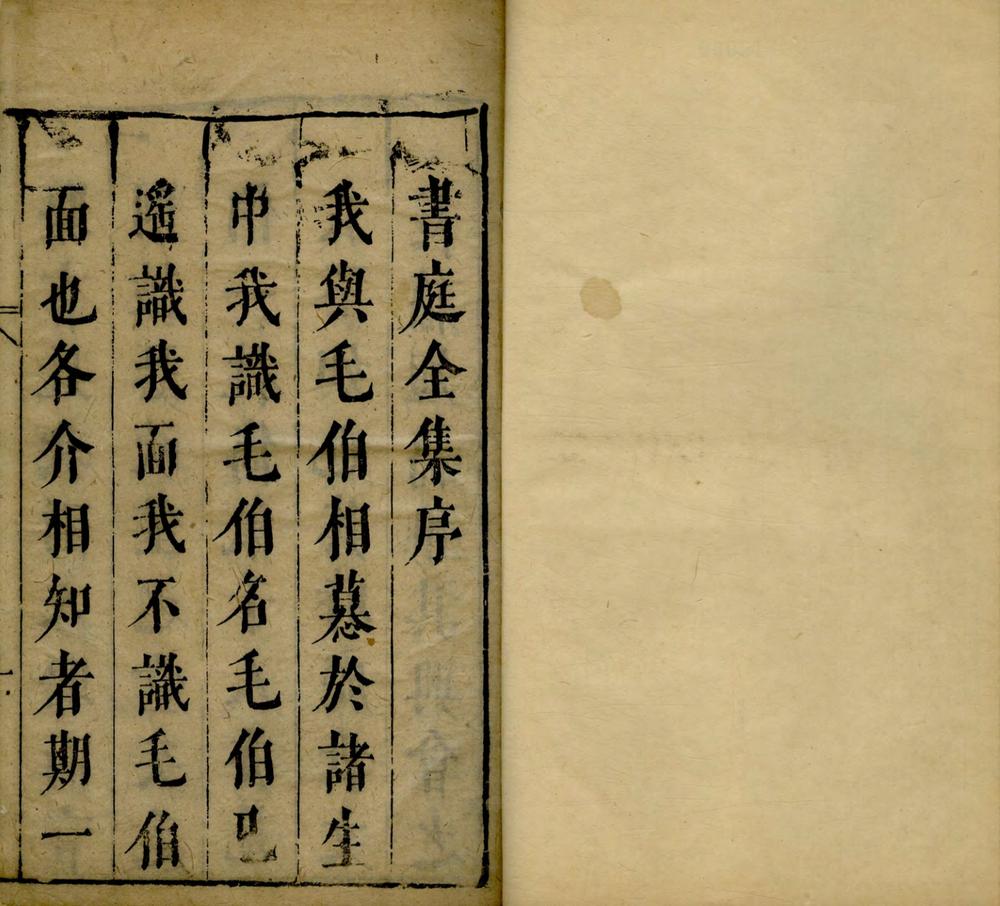 書庭全集序
我與毛伯相慕於諸生
巾我識毛伯名毛伯已
遥識我面我不識毛伯
面也各介相知者期一